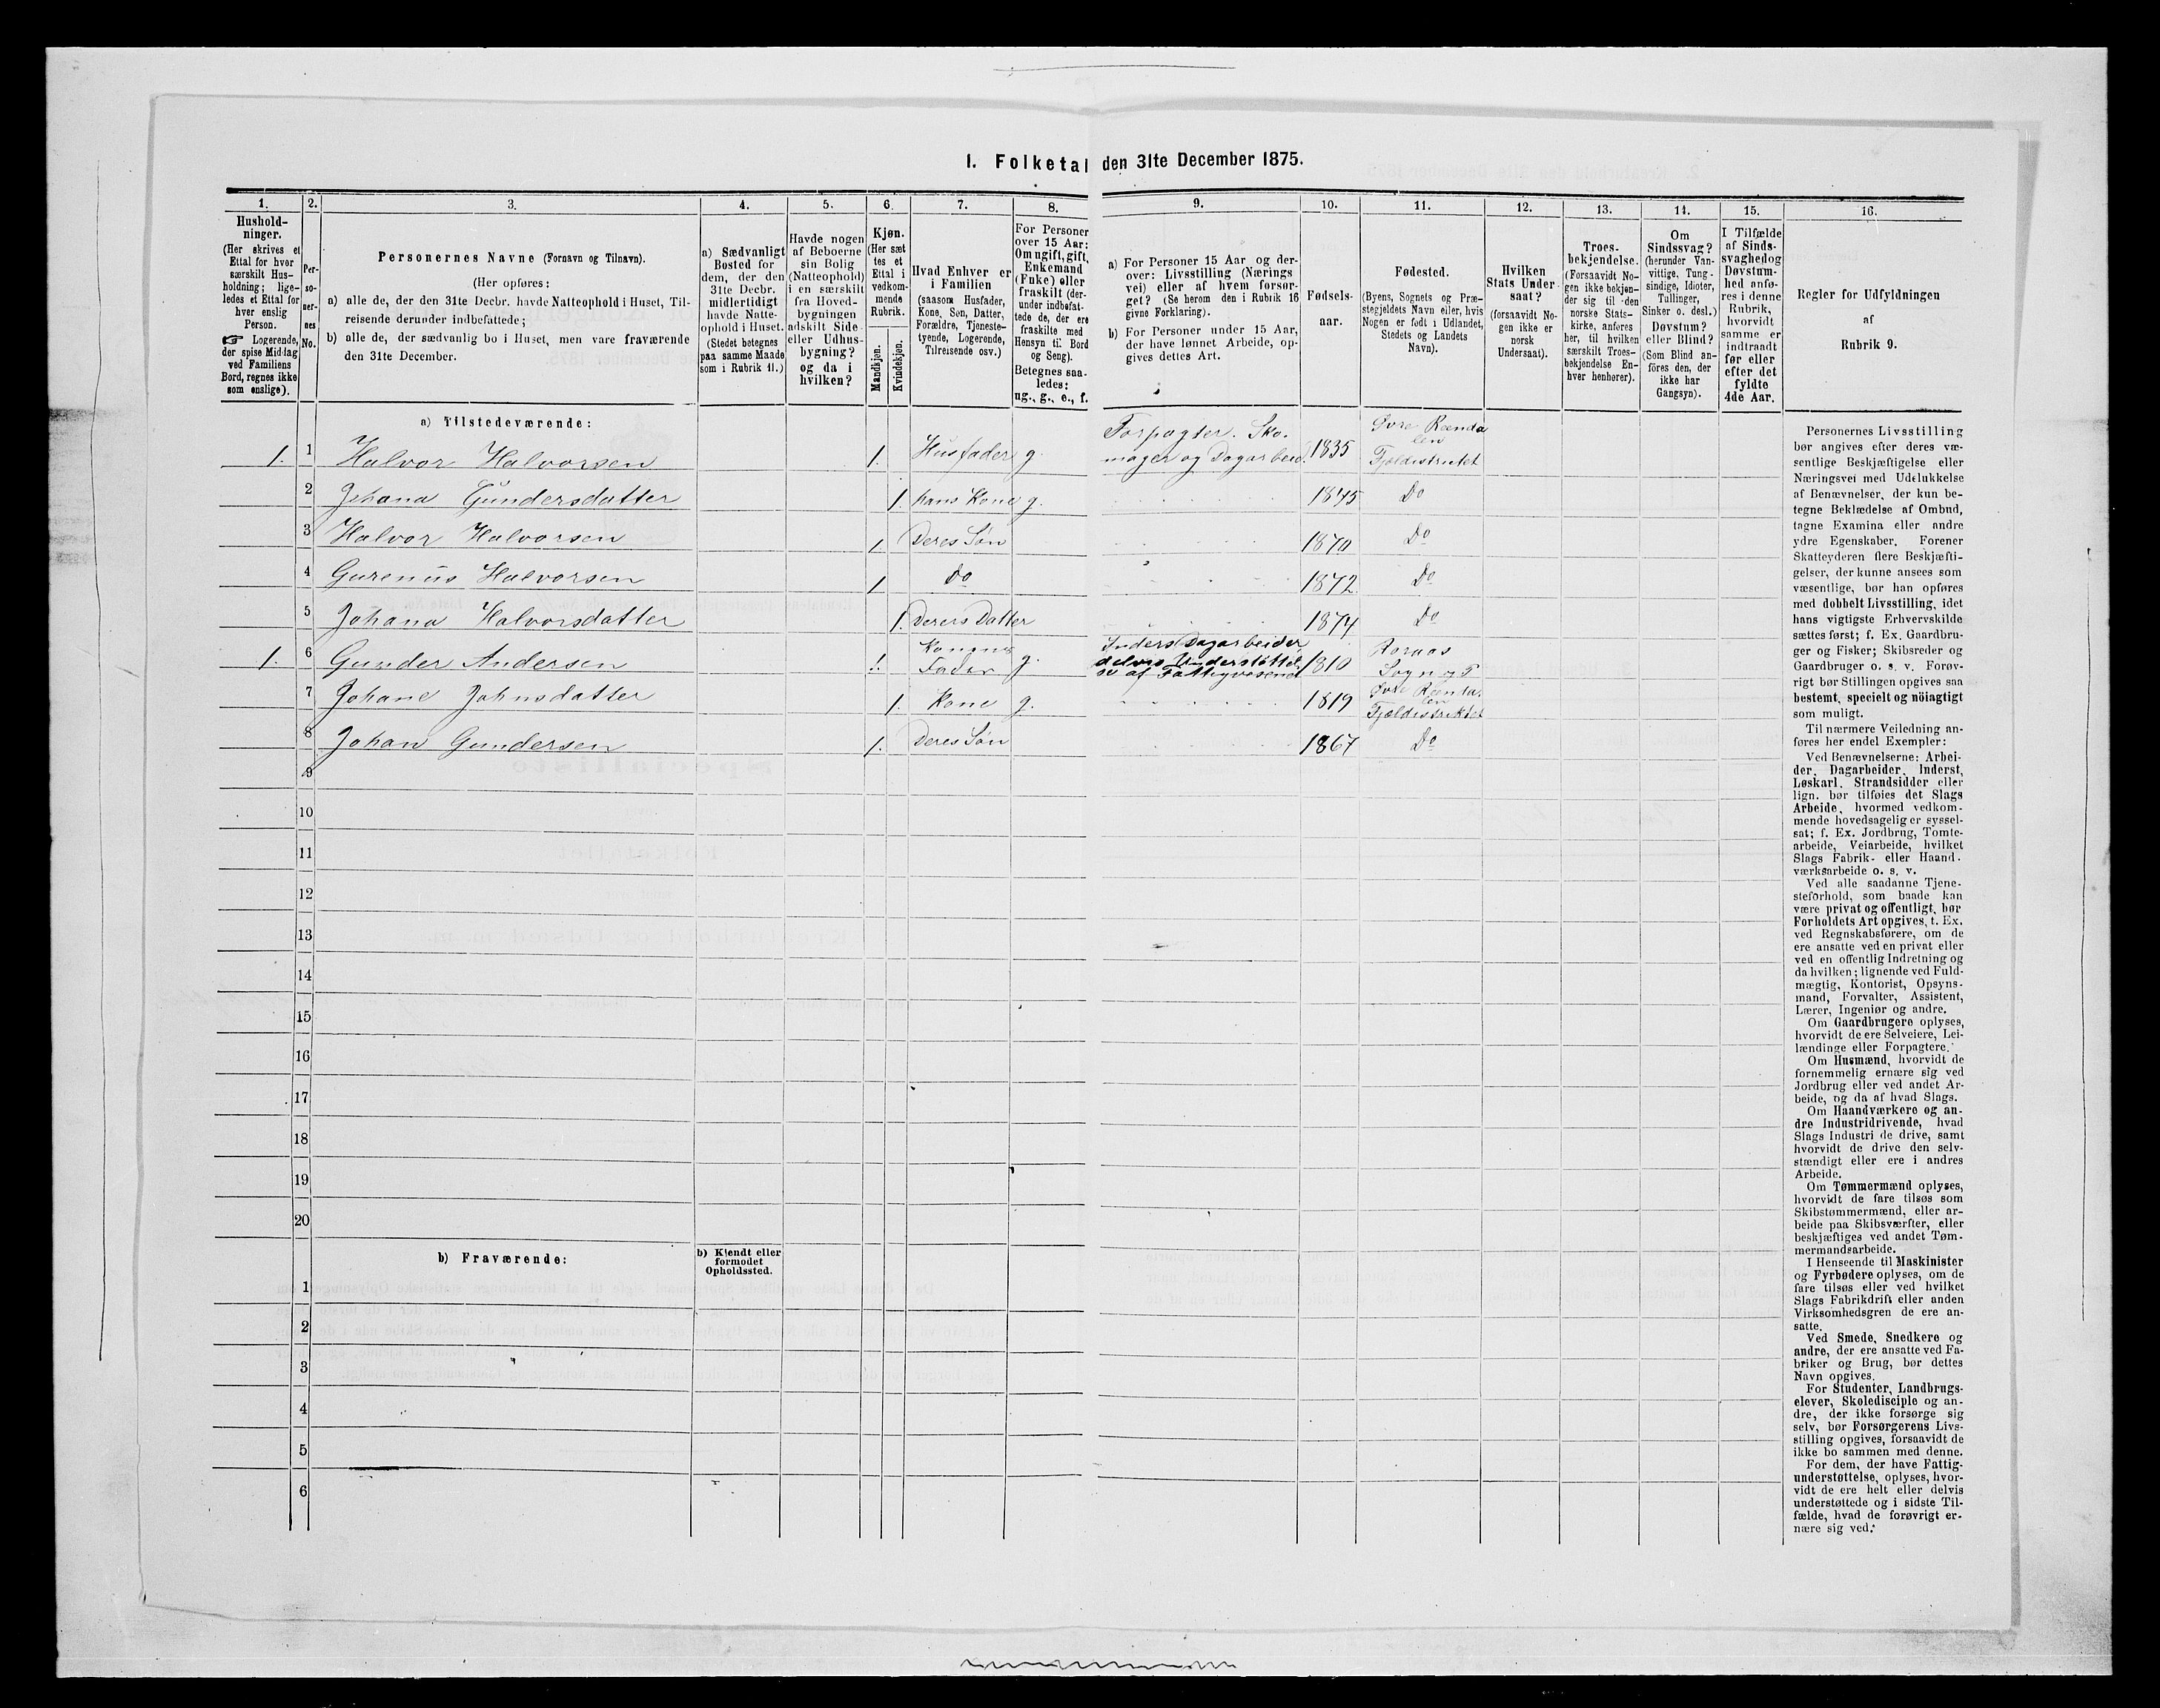 1. Folketal den 31te December 1875.
1. 2. 3. 4. 5. 6. 7. 8. 9. 10. 11. 12. 13. 14. 15. 16.
Hushold-
ninger.
(Her skrives et
Ettal for hver
særskilt Hus-
holdning; lige-
ledes et Ettal for
hver enslig
Person.
☞ Logerende,
der spise Middag
ved Familiens
Bord, regnes ikke
som enslige).
Per-
so-
ner-
nes
No.
Personernes Navne (Fornavn og Tilnavn).
(Her opføres:
a) alle de, der den 31te Decbr. havde Natteophold i Huset, Til-
reisende derunder indbefattede;
b) alle de, der sædvanlig bo i Huset, men vare fraværende
den 31te December.
a) Sædvanligt
Bosted for
dem, der den
31te Decbr.
midlertidigt
havde Natte-
ophold i Huset.
(Stedet betegnes
paa samme Maade
som i Rubrik 11.)
Havde nogen
af Beboerne
sin Bolig
(Natteophold)
i en særskilt
fra Hoved-
bygningen
adskilt Side-
eller Udhus-
bygning?
og da i
hvilken?
Kjøn.
(Her sæt
tes et
Ettal i
vedkom-
mende
Rubrik.
Mandkjøn.
Kvindekjøn.
Hvad Enhver er
i Familien
(saasom Husfader,
Kone, Søn, Datter,
Forældre, Tjeneste-
tyende, Logerende,
Tilreisende osv.)
For Personer
over 15 Aar:
Om ugift, gift,
Enkemand
(Enke) eller
fraskilt (der-
under indbefat-
tede de, der ere
fraskilte med
Hensyn til Bord
og Seng).
Betegnes saa-
ledes:
ug., g., e., f.
a) For Personer 15 Aar og der-
over: Livsstilling (Nærings
vei) eller af hvem forsør-
get? (Se herom den i Rubrik 16
givne Forklaring).
b) For Personer under 15 Aar,
der have lønnet Arbeide, op-
gives dettes Art.
Fødsels-
aar.
Fødested.
(Byens, Sognets og Præ-
stegjeldets Navn eller, hvis
Nogen er født i Udlandet,
Stedets og Landets
Navn).
Hvilken
Stats Under-
saat?
(forsaavidt No-
gen ikke er
norsk
Undersaat).
Troes-
bekjendelse.
(Forsaavidt No-
gen ikke bekjen-
der sig til den
norske Stats-
kirke, anføres
her, til hvilken
særskilt Troes-
bekjendelse En-
hver henhører).
Om
Sindssvag?
(herunder Van-
vittige, Tung-
sindige, Idioter,
Tullinger,
Sinker o. desl.)
Døvstum?
eller Blind?
(Som Blind an-
föres den, der
ikke har
Gangsyn).
I Tilfælde
af Sinds-
svaghed og
Døvstum-
hed anfø-
res i denne
Rubrik,
hvorvidt
samme er
indtraadt
før eller
efter det
fyldte
4de Aar.
Regler for Udfyldningen
af
Rubrik 9.
a) Tilstedeværende:
1. 1 Halvor Halvorsen 1. Husfader g. Forpagter. Sko-
mager og Dagarbeid. 1835 Øvre Reenda
len
Fjeldistriktet
2 Johana Gundersdatter 1. hans Kone g. 1845 Do
3 Halvor Halvorsen 1 Deres Søn 1870 Do
4 Gurenius Halvorsen 1 Do 1872. Do
5 Johana Halvorsdatter 1. Deres Datter 1874 Do
1. 6 Gunder Andersen 1. Konens
Fader g. Inders Dagarbeider
delvis Understöttel-
se af Fattigvæsenet 1810 Roraas
Sogn
7 Johane Johnsdatter 1. Kone g. 1819 Øvre Reenda-
len
Fjeldistriktet
8 Johan Gundersen 1. Deres Søn 1867 Do
9
10
11
12
13
14
15
16
17
18
19
20
b) Fraværende:
b) Kjendt eller
formodet
Opholdssted.
1
2
3
4
5
6
Personernes Livsstilling
bør angives efter deres væ-
sentlige Beskjæftigelse eller
Næringsvei med Udelukkelse
af Benævnelser, der kun be-
tegne Beklædelse af Ombud,
tagne Examina eller andre
ydre Egenskaber. Forener
Skatteyderen flere Beskjæfti-
gelser, der kunne ansees som
væsentlige, bør han opføres
med dobbelt Livsstilling, idet
hans vigtigste Erhvervskilde
sættes først; f. Ex. Gaardbru-
ger og Fisker; Skibsreder og
Gaardbruger o. s. v. Forøv-
rigt bør Stillingen opgives saa
bestemt, specielt og nöiagtigt
som muligt.
Til nærmere Veiledning an-
føres her endel Exempler:
Ved Benævnelserne: Arbei-
der, Dagarbeider, Inderst,
Løskarl, Strandsidder eller
lign. bør tilføies det Slags
Arbeide, hvormed vedkom-
mende hovedsagelig er syssel-
sat; f. Ex. Jordbrug, Tomte-
arbeide, Veiarbeide, hvilket
Slags Fabrik- eller Haand-
værksarbeide o. s. v.
Ved alle saadanne Tjene-
steforhold, som baade kan
være privat og offentligt, bør
Forholdets Art opgives, t. Ex.
ved Regnskabsførere, om de
ere ansatte ved en privat eller
ved en offentlig Indretning og
da hvilken; lignende ved Fuld-
mægtig, Kontorist, Opsyns-
mand, Forvalter, Assistent,
Lærer, Ingeniør og andre.
Om Gaardbrugere oplyses,
hvorvidt de ere Selveiere, Lei-
lændinge eller Forpagtere.
Om Husmænd, hvorvidt de
fornemmelig ernære sig ved
Jordbrug eller ved andet Ar-
beide, og da af hvad Slags.
Om Haandværkere og an-
dre Industridrivende, hvad
Slags Industri de drive, samt
hvorvidt de drive den selv-
stændigt eller ere i andres
Arbeide.
Om Tømmermænd oplyses,
hvorvidt de fare tilsøs som
Skibstømmermænd, eller ar-
beide paa Skibsværfter, eller
beskjæftiges ved andet Tøm-
mermandsarbeide.
I Henseende til Maskinister
og Fyrbødere oplyses, om de
fare tilsøs eller ved hvilket
Slags Fabrikdrift eller anden
Virksomhedsgren de ere an-
satte.
Ved Smede, Snedkere og
andre, der ere ansatte ved Fa-
briker og Brug, bør dettes
Navn opgives.
For Studenter, Landbrugs-
elever, Skoledisciple og an-
dre, der ikke forsørge sig
selv, bør Forsørgerens Livs-
stilling opgives, forsaavidt de
ikke bo sammen med denne.
For dem, der have Fattig-
understøttelse, oplyses, hvor-
vidt de ere helt eller delvis
understøttede og i sidste Til-
fælde, hvad de forøvrigt er-
nære sig ved.